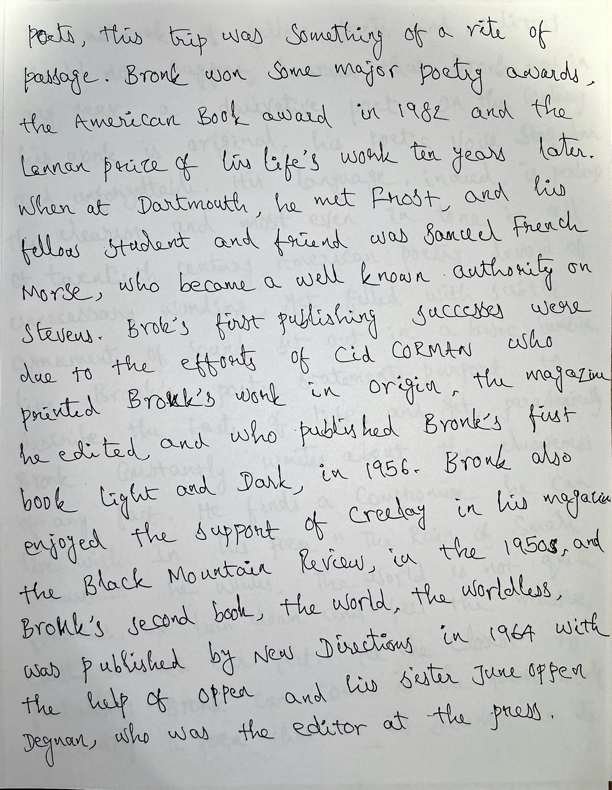 poets, this trip was something of a rite of
passage. Bronk won some major poetry awards,
the American Book award in 1982 and the
Lannan prize of his life's work ten years later.
When at Dartmouth, he met Frost, and his
fellow student and friend was Samuel French
Morse, who became a well known authority on
Stevens. Brok's first publishing successes were
due to the efforts of Cid CORMAN who
printed Bronk's work in origin, the magazine
he edited, and who published Bronk's first
book Light and Dark, in 1956. Bronk also
enjoyed the support of Creeley in his magazine
the Black Mountain Review, in the 1950s, and
Bronk's second book, the world, the worldless,
was published by New Directions in 1964 with
the help of oppen and his sister June oppen
Degnan, who was the editor at the press.